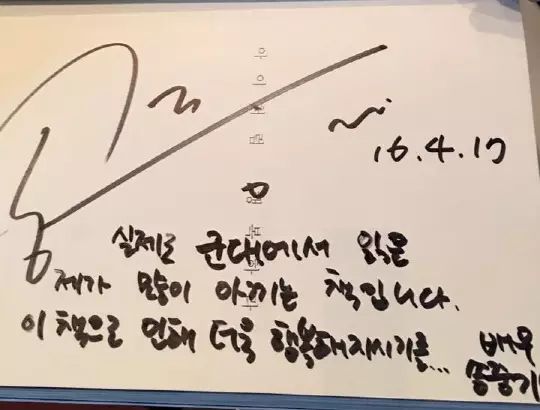 16.4.17
실제로 군대에서 읽은
제가 많이 아끼는 책입니다.
이 책으로 인해 더욱 행복해지시기를... 배우
송중기